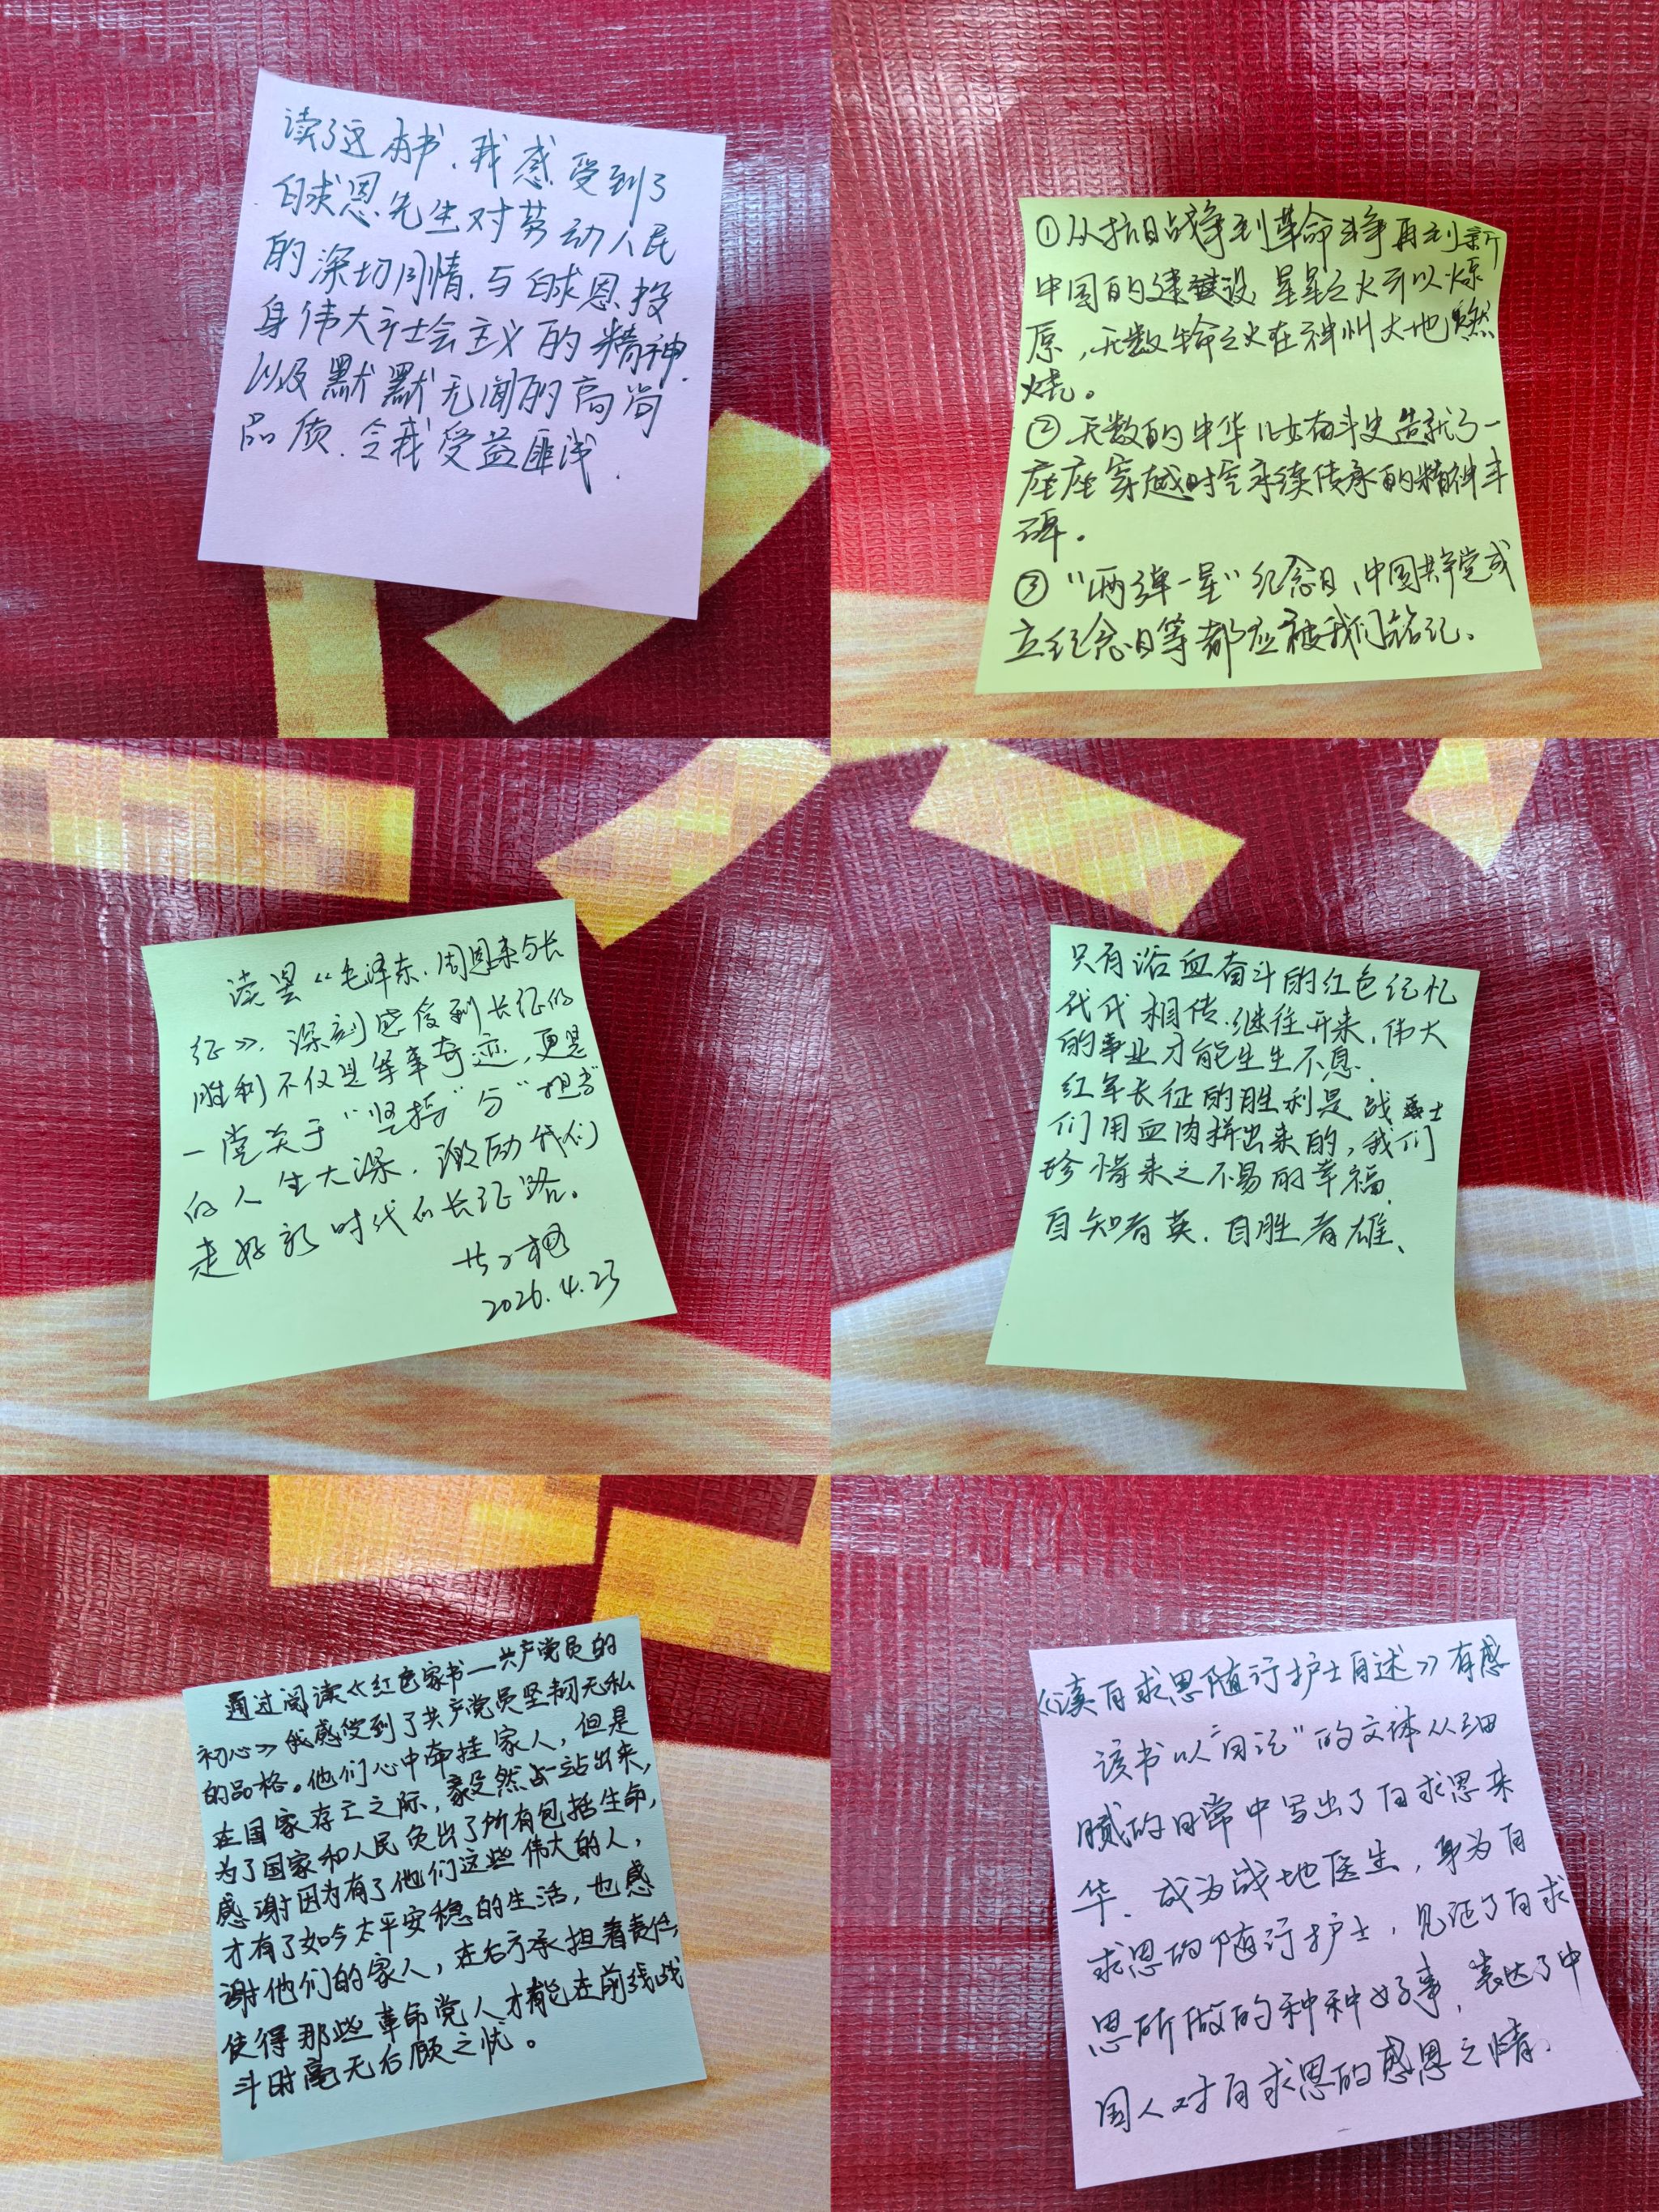 读了这本书，我感受到了
白求恩先生对劳动人民
的深切同情，与白求恩投
身伟大社会主义的精神，
以及默默无闻的高尚
品质，令我受益匪浅．
①从抗日战争到革命斗争再到新
中国的建设，星星之火可以燎
原，无数生命之火在神州大地燃
烧。
②无数的中华儿女奋斗史造就了一
座座穿越时空永续传承的精神丰
碑。
③“两弹一星”纪念日、中国共产党成
立纪念日等都应被我们铭记。
读罢《毛泽东、周恩来与长
征》，深刻感受到长征的
胜利不仅是军事奇迹，更是
一堂关于“坚持”与“担当”
的人生大课，激励我们
走好新时代的长征路。
2026.4.23
只有浴血奋斗的红色记忆
代代相传，继往开来，伟大
的事业才能生生不息．
红军长征的胜利是战士
们用血肉拼出来的，我们
珍惜来之不易的幸福．
自知者英，自胜者雄、
通过阅读《红色家书—共产党员的
初心》我感受到了共产党员坚韧无私
的品格。他们心中牵挂家人，但是
在国家存亡之际，毅然站出来，
为了国家和人民负出了所有包括生命，
感谢因为有了他们这些伟大的人，
才有了如今太平安稳的生活，也感
谢他们的家人，在右方承担着责任，
使得那些革命党人才能在前线战
斗时毫无右顾之忧。
《读白求恩随行护士自述》有感
该书以“日记”的文体从细
腻的日常中写出了白求恩来
华、成为战地医生，身为白
求恩的随行护士，见证了白求
恩所做的种种好事，表达了中
国人对白求恩的感恩之情．